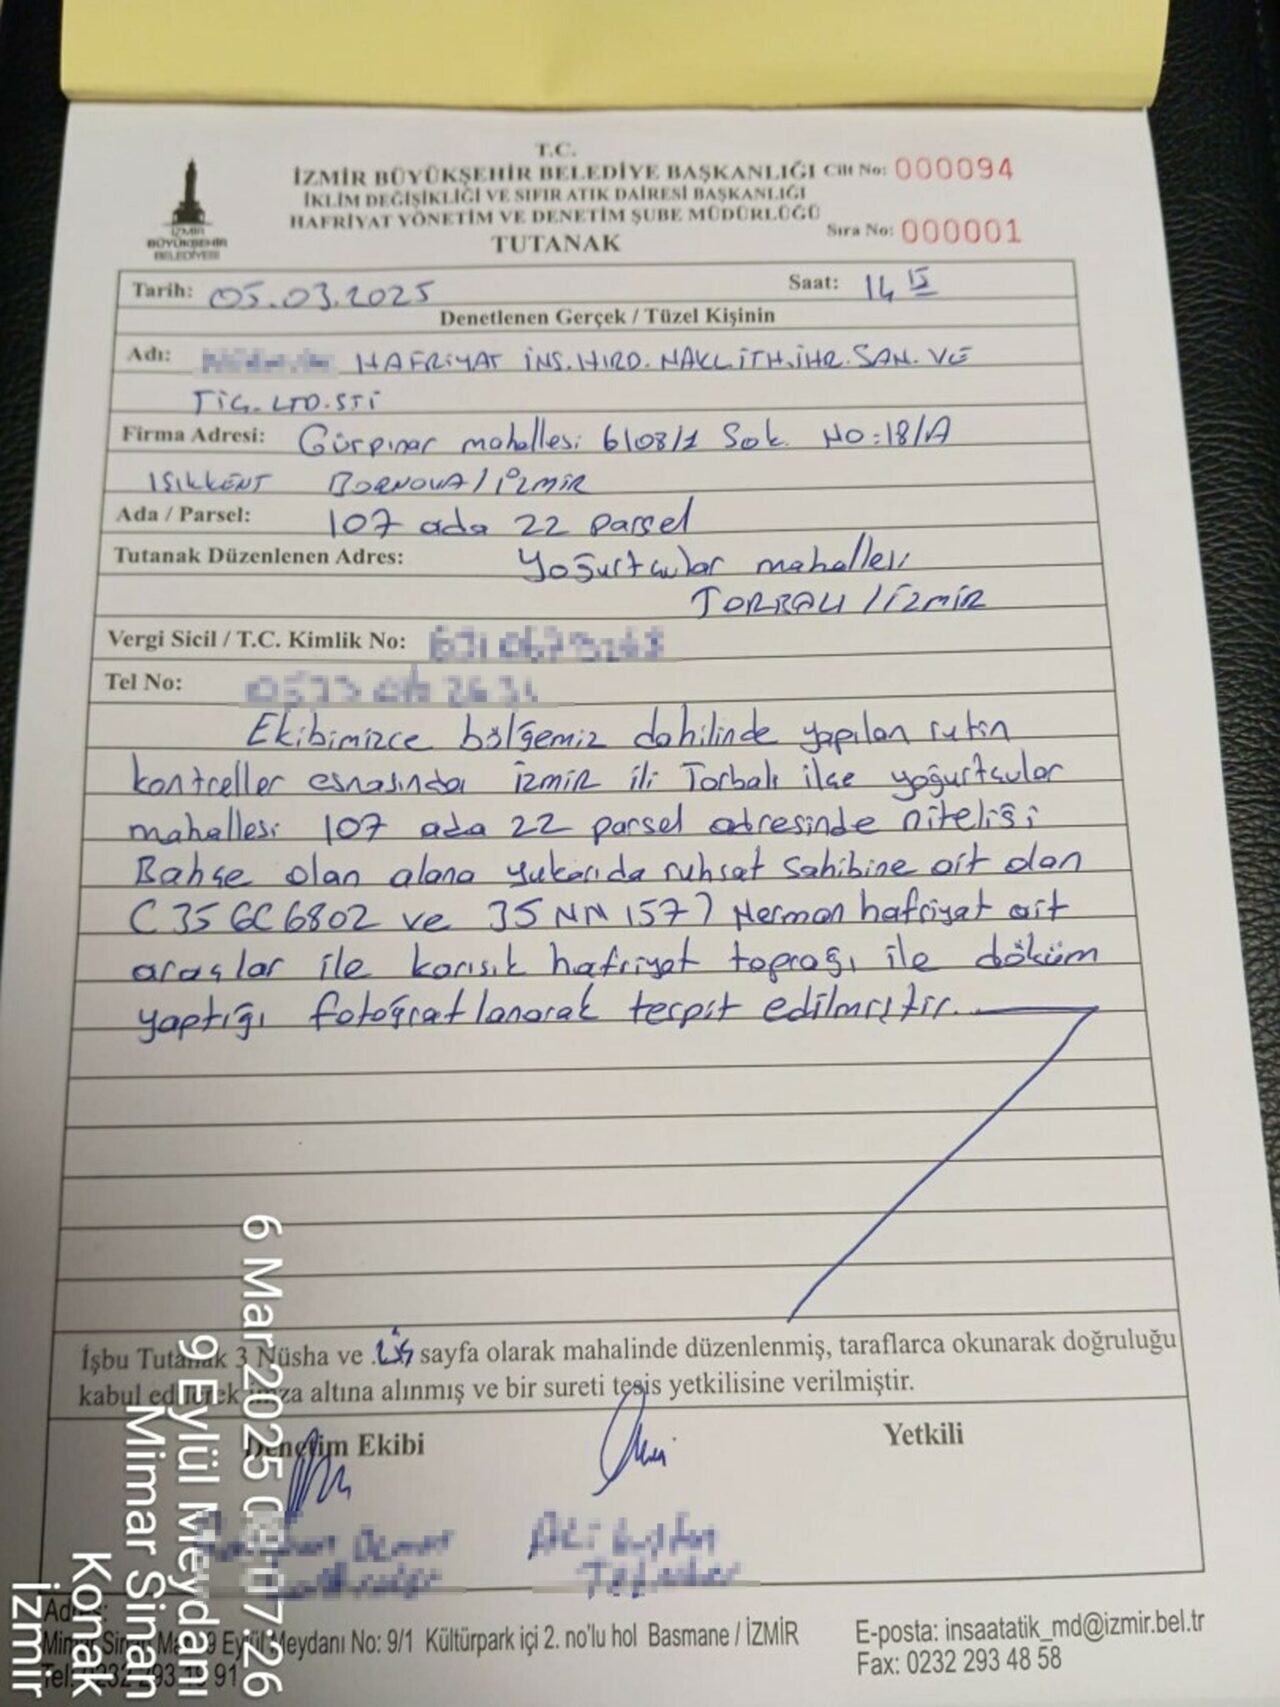 T.C.
İZMİR BÜYÜKŞEHİR BELEDİYE BAŞKANLIĞI Cilt No: 000094
İKLİM DEĞİŞİKLİĞİ VE SIFIR ATIK DAİRESİ BAŞKANLIĞI
HAFRİYAT YÖNETİM VE DENETİM ŞUBE MÜDÜRLÜĞÜ
TUTANAK Sıra No: 000001
İZMİR
BÜYÜKŞEHİR
BELEDİYESİ
Tarih: 05.03.2025 Saat: 14 15
Denetlenen Gerçek / Tüzel Kişinin
Adı: HAFRİYAT İNŞ.HIRD.NAKL.İTH.İHR.SAN.VE
TİC.LTD.ŞTİ
Firma Adresi: Gürpınar mahallesi 6108/1 Sok. NO:18/A
IŞIKKENT BORNOVA/İZMİR
Ada / Parsel: 107 ada 22 parsel
Tutanak Düzenlenen Adres: Yoğurtçular mahallesi
TORBALI/İZMİR
Vergi Sicil / T.C. Kimlik No:
Tel No:
Ekibimizce bölgemiz dahilinde yapılan rutin
kontroller esnasında İzmir ili Torbalı ilçe yoğurtçular
mahallesi 107 ada 22 parsel adresinde niteliği
Bahçe olan alana yukarıda ruhsat sahibine ait olan
C 35 GC 6802 ve 35 NN 1577 Merman hafriyat ait
araçlar ile karışık hafriyat toprağı ile döküm
yaptığı fotoğraflanarak tespit edilmiştir.
İşbu Tutanak 3 Nüsha ve üç sayfa olarak mahalinde düzenlenmiş, taraflarca okunarak doğruluğu
kabul edilerek imza altına alınmış ve bir sureti tesis yetkilisine verilmiştir.
Denetim Ekibi Yetkili
Adres:
Mimar Sinan Mah. 9 Eylül Meydanı No: 9/1 Kültürpark içi 2. no'lu hol Basmane / İZMİR
E-posta: insaatatik_md@izmir.bel.tr
Fax: 0232 293 48 58
6 Mar 2025
9 Eylül Meydanı
Mimar Sinan
Konak
İzmir